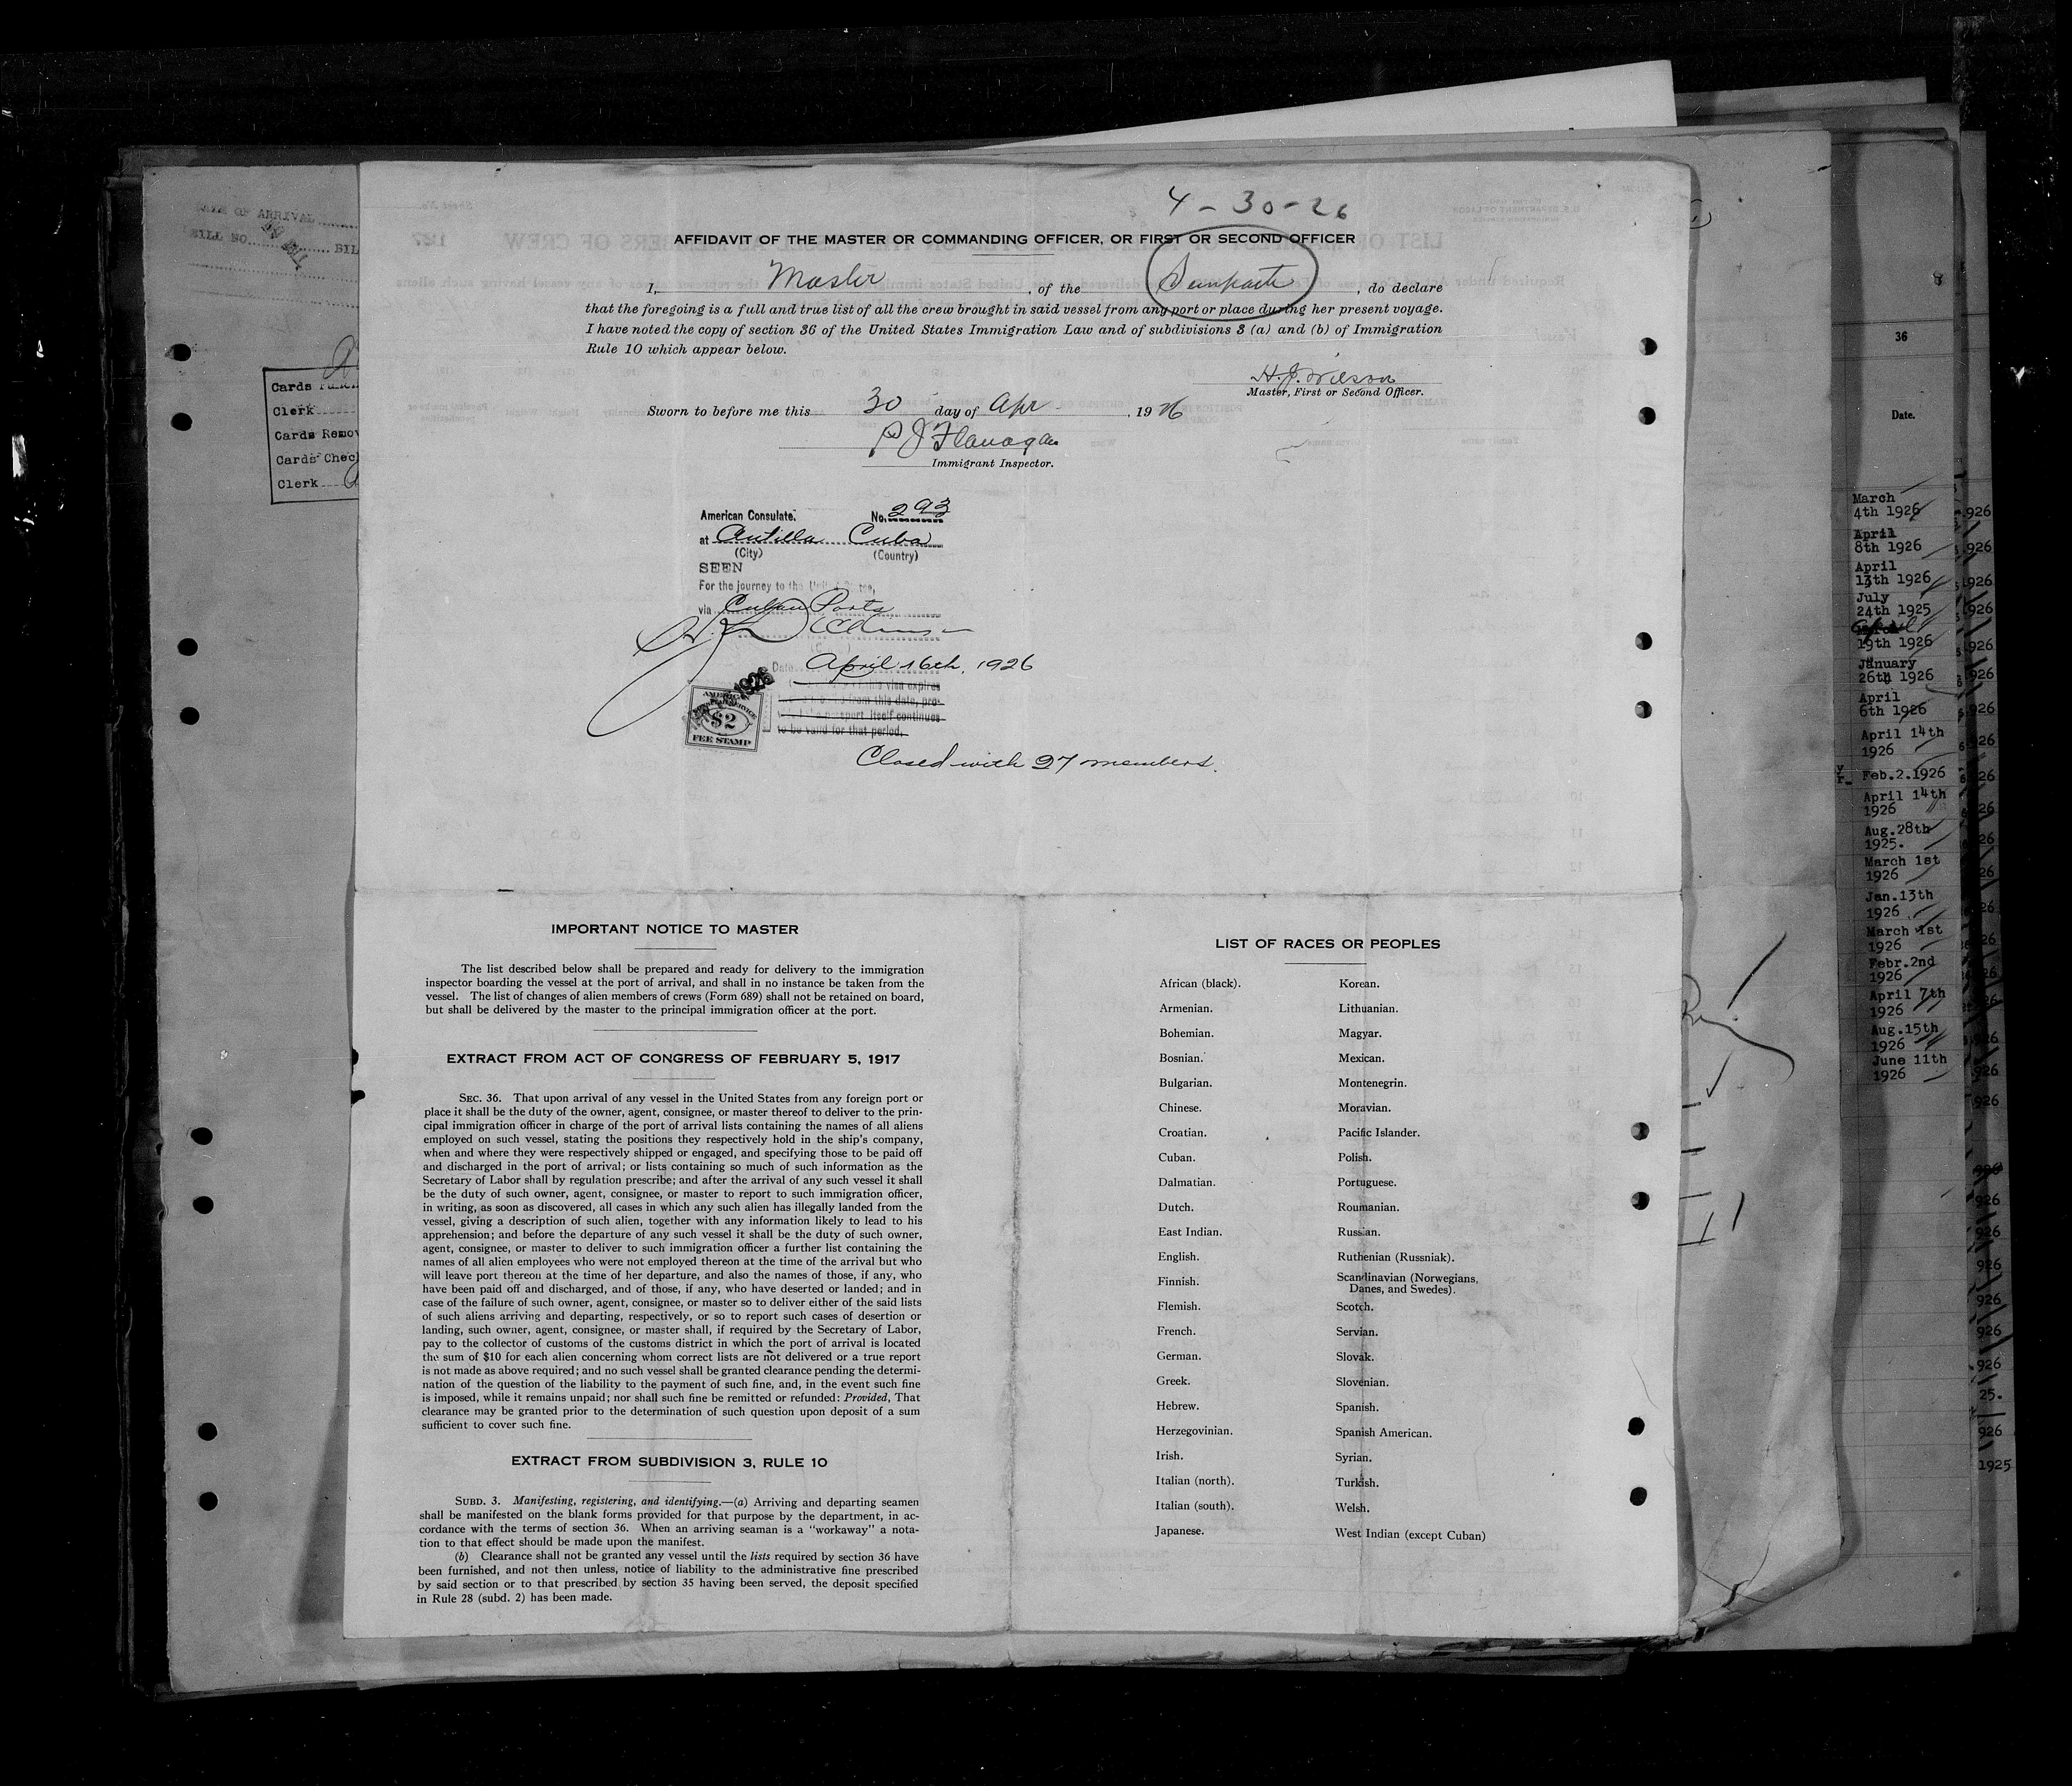 4-30-26
AFFIDAVIT OF THE MASTER OR COMMANDING OFFICER, OR FIRST OR SECOND OFFICER
I, Master, of the, do declare
that the foregoing is a full and true list of all the crew brought in said vessel from any port or place during her present voyage.
I have noted the copy of section 36 of the United States Immigration Law and of subdivisions 3 (a) and (b) of Immigration
Rule 10 which appear below.
H. J. Wilson
Master, First or Second Officer.
Sworn to before me this 30 day of Apr, 1926
P J Flanagan
Immigrant Inspector.
American Consulate. No. 293
at Antilla Cuba
(City) (Country)
SEEN
For the journey to the United States,
via Cuban Ports
Date April 16th, 1926
this visa expires
from this date, pro-
passport itself continues
to be valid for that period.
1926
AMERICAN
SERVICE
$2
FEE STAMP
Closed with 27 members.
IMPORTANT NOTICE TO MASTER
The list described below shall be prepared and ready for delivery to the immigration
inspector boarding the vessel at the port of arrival, and shall in no instance be taken from the
vessel. The list of changes of alien members of crews (Form 689) shall not be retained on board,
but shall be delivered by the master to the principal immigration officer at the port.
EXTRACT FROM ACT OF CONGRESS OF FEBRUARY 5, 1917
SEC. 36. That upon arrival of any vessel in the United States from any foreign port or
place it shall be the duty of the owner, agent, consignee, or master thereof to deliver to the prin-
cipal immigration officer in charge of the port of arrival lists containing the names of all aliens
employed on such vessel, stating the positions they respectively hold in the ship's company,
when and where they were respectively shipped or engaged, and specifying those to be paid off
and discharged in the port of arrival; or lists containing so much of such information as the
Secretary of Labor shall by regulation prescribe; and after the arrival of any such vessel it shall
be the duty of such owner, agent, consignee, or master to report to such immigration officer,
in writing, as soon as discovered, all cases in which any such alien has illegally landed from the
vessel, giving a description of such alien, together with any information likely to lead to his
apprehension; and before the departure of any such vessel it shall be the duty of such owner,
agent, consignee, or master to deliver to such immigration officer a further list containing the
names of all alien employees who were not employed thereon at the time of the arrival but who
will leave port thereon at the time of her departure, and also the names of those, if any, who
have been paid off and discharged, and of those, if any, who have deserted or landed; and in
case of the failure of such owner, agent, consignee, or master so to deliver either of the said lists
of such aliens arriving and departing, respectively, or so to report such cases of desertion or
landing, such owner, agent, consignee, or master shall, if required by the Secretary of Labor,
pay to the collector of customs of the customs district in which the port of arrival is located
the sum of $10 for each alien concerning whom correct lists are not delivered or a true report
is not made as above required; and no such vessel shall be granted clearance pending the determi-
nation of the question of the liability to the payment of such fine, and, in the event such fine
is imposed, while it remains unpaid; nor shall such fine be remitted or refunded: Provided, That
clearance may be granted prior to the determination of such question upon deposit of a sum
sufficient to cover such fine.
EXTRACT FROM SUBDIVISION 3, RULE 10
SUBD. 3. Manifesting, registering, and identifying.—(a) Arriving and departing seamen
shall be manifested on the blank forms provided for that purpose by the department, in ac-
cordance with the terms of section 36. When an arriving seaman is a "workaway" a nota-
tion to that effect should be made upon the manifest.
(b) Clearance shall not be granted any vessel until the lists required by section 36 have
been furnished, and not then unless, notice of liability to the administrative fine prescribed
by said section or to that prescribed by section 35 having been served, the deposit specified
in Rule 28 (subd. 2) has been made.
LIST OF RACES OR PEOPLES
African (black). Korean.
Armenian. Lithuanian.
Bohemian. Magyar.
Bosnian. Mexican.
Bulgarian. Montenegrin.
Chinese. Moravian.
Croatian. Pacific Islander.
Cuban. Polish.
Dalmatian. Portuguese.
Dutch. Roumanian.
East Indian. Russian.
English. Ruthenian (Russniak).
Finnish. Scandinavian (Norwegians,
Danes, and Swedes).
Flemish. Scotch.
French. Servian.
German. Slovak.
Greek. Slovenian.
Hebrew. Spanish.
Herzegovinian. Spanish American.
Irish. Syrian.
Italian (north). Turkish.
Italian (south). Welsh.
Japanese. West Indian (except Cuban)
DATE OF ARRIVAL
BILL NO. BIL
Cards
Clerk
Cards Remov
Cards Chec
Clerk
36
Date.
March
4th 1926
April
8th 1926
April
13th 1926
July
24th 1925
April
19th 1926
January
26th 1926
April
6th 1926
April 14th
1926
Feb.2.1926
April 14th
1926
Aug.28th
1925.
March 1st
1926
Jan.13th
1926
March 1st
1926
Febr.2nd
1926
April 7th
1926
Aug.15th
1926
June 11th
1926